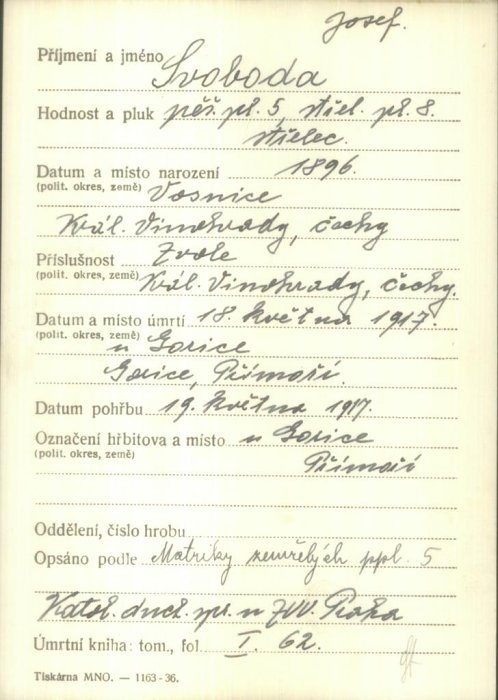 Josef.
Příjmení a jméno Svoboda
Hodnost a pluk pěš. pl. 5, střel. pl. 8.
střelec.
Datum a místo narození 1896.
(polit. okres, země) Vosnice
Král. Vinohrady, čechy
Příslušnost Zvole
(polit. okres, země) Král. Vinohrady, čechy.
Datum a místo úmrtí 18. května 1917.
(polit. okres, země) u Gorice
Gorice, Přímoří.
Datum pohřbu 19. května 1917.
Označení hřbitova a místo u Gorice
(polit. okres, země) Přímoří
Oddělení, číslo hrobu
Opsáno podle Matriky zemřelých ppl. 5
Katol. duch. spr. u ZVV. Praha
Úmrtní kniha: tom., fol. I. 62.
Tiskárna MNO. — 1163-36.